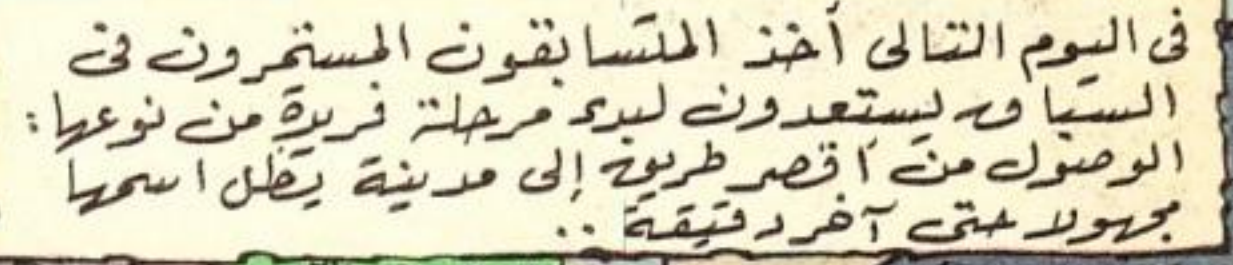 فى اليوم التالى أخذ المتسابقون المستمرون فى
السباق يستعدون لبدء مرحلة فريدة من نوعها :
الوصول من أقصر طريق إلى مدينة يظل اسمها
مجهولا حتى آخر دقيقة ..